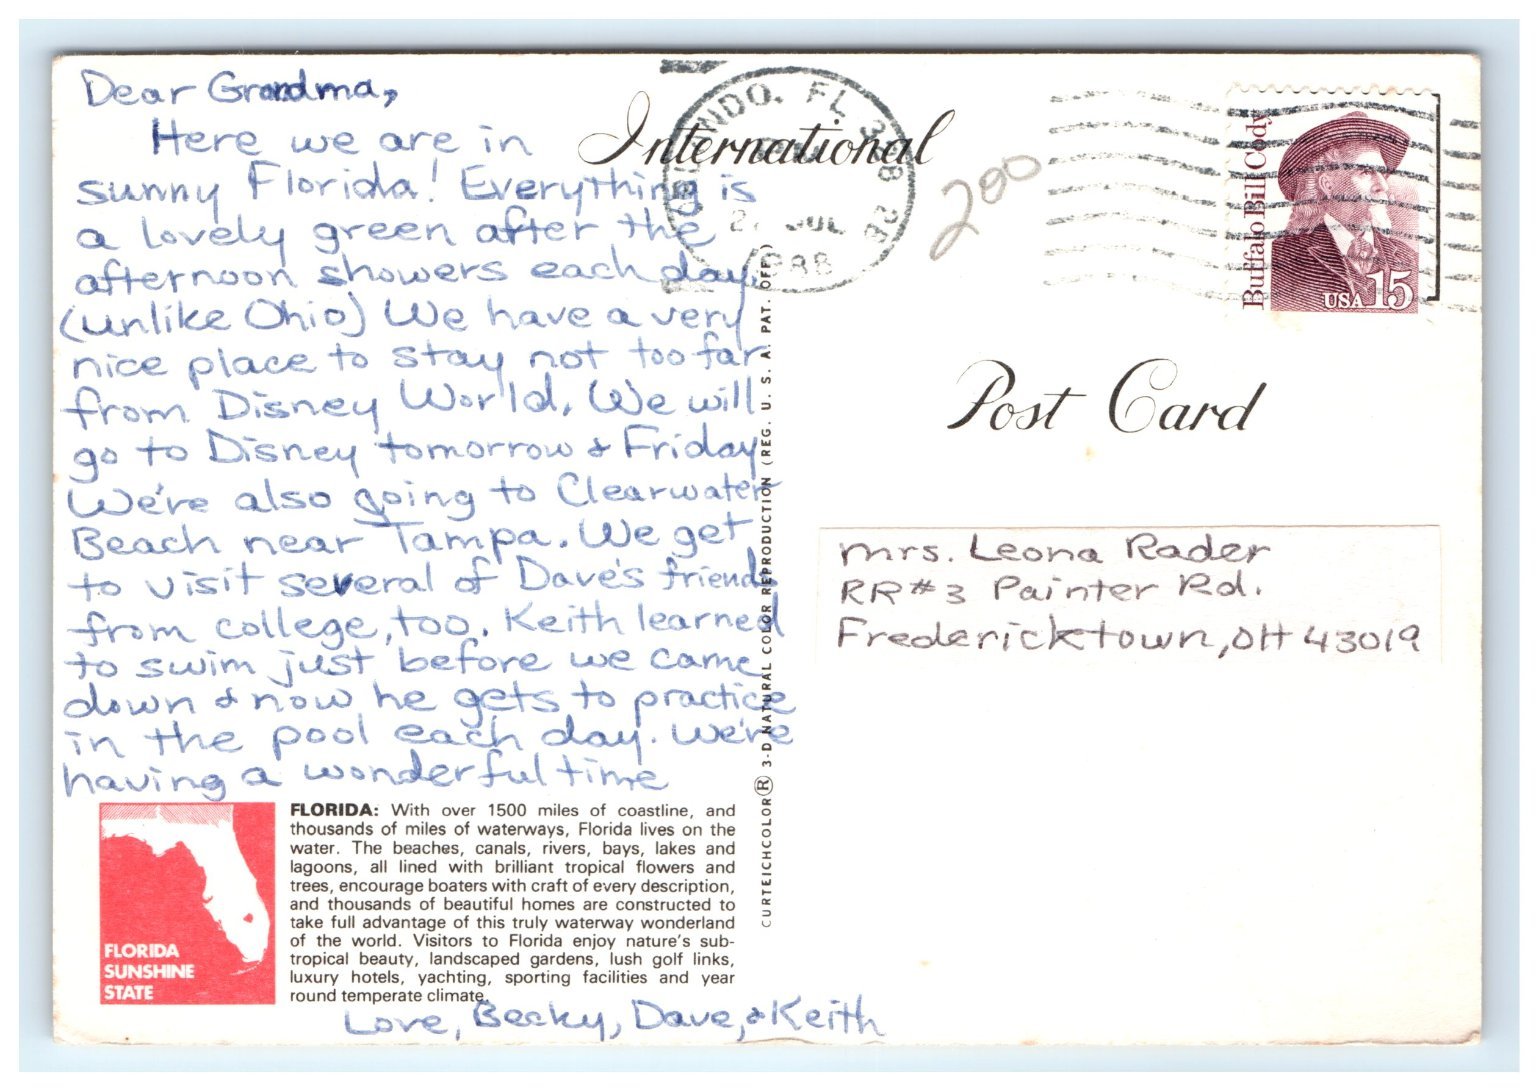 Dear Grandma,
Here we are in
sunny Florida! Everything is
a lovely green after the
afternoon showers each day.
(unlike Ohio) We have a very
nice place to stay not too far
from Disney World. We will
go to Disney tomorrow & Friday
We're also going to Clearwater
Beach near Tampa. We get
to visit several of Dave's friends
from college, too. Keith learned
to swim just before we came
down & now he gets to practice
in the pool each day. We're
having a wonderful time
Love, Becky, Dave, & Keith
FLORIDA: With over 1500 miles of coastline, and
thousands of miles of waterways, Florida lives on the
water. The beaches, canals, rivers, bays, lakes and
lagoons, all lined with brilliant tropical flowers and
trees, encourage boaters with craft of every description,
and thousands of beautiful homes are constructed to
take full advantage of this truly waterway wonderland
of the world. Visitors to Florida enjoy nature's sub-
tropical beauty, landscaped gardens, lush golf links,
luxury hotels, yachting, sporting facilities and year
round temperate climate.
FLORIDA
SUNSHINE
STATE
CURTEICHCOLOR® 3-D NATURAL COLOR REPRODUCTION (REG. U. S. A. PAT. OFF.)
International
ORLANDO, FL 328 28
JUL
1988
200
Buffalo Bill Cody
USA 15
Post Card
Mrs. Leona Rader
RR#3 Painter Rd.
Fredericktown, OH 43019